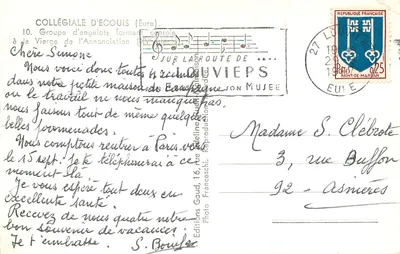 COLLÉGIALE D'ECOUIS (Eure)
10. Groupe d'angelots formant console
à la Vierge de l'Annonciation
Chère Simone
Nous voici donc toutes
dans notre petite maison de campagne
ou le travail ne nous manque pas.
nous faisons tout de même quelques
belles promenades.
Nous comptons rentrer à Paris vers
le 15 sept. Je te téléphonerai à ce
moment là.
Je vous espère tout deux en
excellente santé.
Recevez de nous quatre notre
bon souvenir de vacances.
Je t'embrasse. S.
SUR LA ROUTE DE .....
LOUVIERS
SON MUSÉE
27 LOUVIERS
EURE
REPUBLIQUE FRANÇAISE
0,25
MONT-DE-MARSAN
Editions Gaud, 16, rue
Photo Franceschi.
Madame S. Clébrote
3, rue Buffon
92 - Asnières